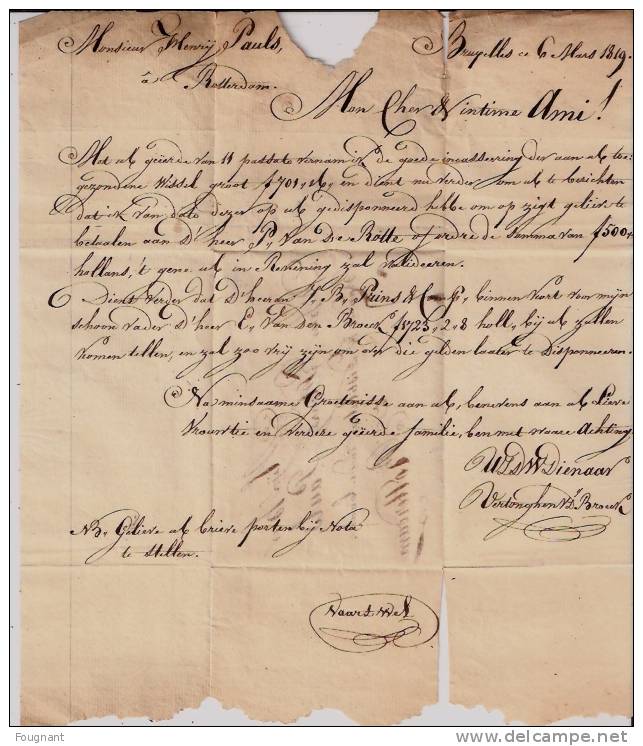 Monsieur Henrij Pauls, Bruxelles ce 6 Mars 1819.
à
Rotterdam.
Mon Cher & intime Ami!
Met ub geëerde van 11 passato vernam ik de goede incasseering der aan ub toe-
gezondene Wissel groot f 701,, en dient nu verder om ub te berichten
dat ik van dato dezer op ub gedisponneerd hebbe om op zigt gelieve te
betaalen aan d'heer P. Van de Rotte of ordre de Somma van f 500,,
hollans, 't gene ub in Rekening zal valideeren.
Dient verder dat d'heeren J. B. Prins & Comp. binnen kort voor mijn
schoon vader d'heer C. Van den Broeck f 1723,, 2,, 8 holl. bij ub zullen
komen tellen, en zal zoo vrij zijn om over die gelden laater te disponneeren.
Na minsaame Groetenisse aan ub, benevens aan ub Lieve
Vrouwtie en verdere geëerde familie, ben met waare Achting
UEDWDienaar
Vertonghen Vd Broeck
NB. Gelieve ub brieve porten bij Nota
te stellen.
Vaart Wel
Fougnant
www.delcampe.net